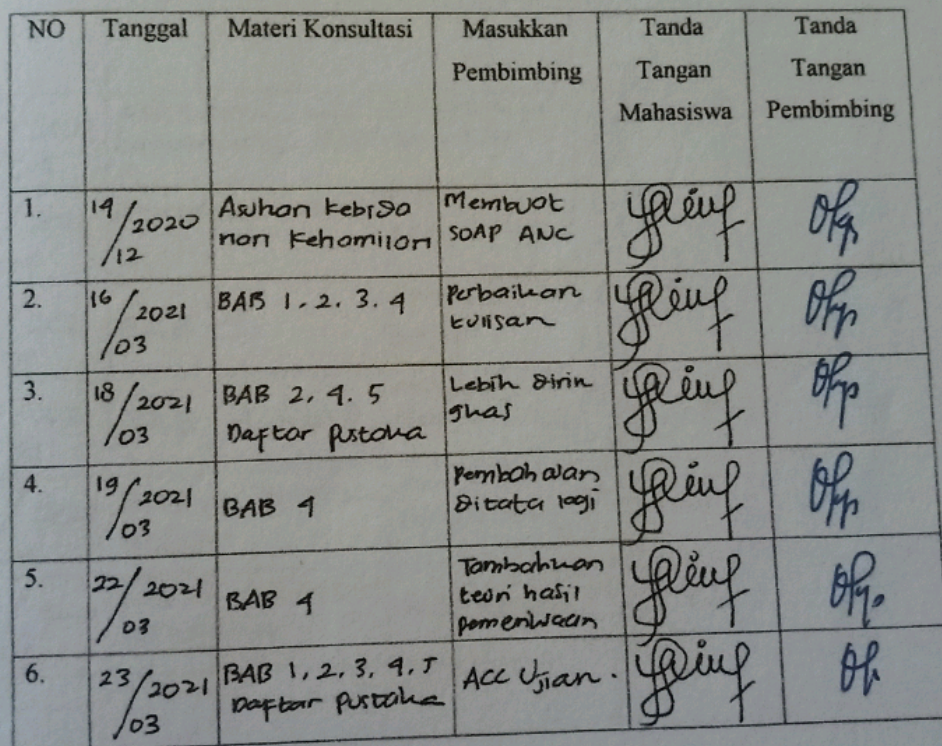 NO Tanggal Materi Konsultasi Masukkan Pembimbing Tanda Tangan Mahasiswa Tanda Tangan Pembimbing
1. 14/12/2020 Asuhan kebida Membuat
nan kehamilan SOAP ANC
2. 16/03/2021 BAB 1. 2. 3. 4 Perbaikan
tulisan
3. 18/03/2021 BAB 2, 4. 5 Lebih dirin
Daftar Pustaka gkas
4. 19/03/2021 BAB 4 Pembahasan
ditata lagi
5. 22/03/2021 BAB 4 Tambahkan
teori hasil
pemeriksaan
6. 23/03/2021 BAB 1, 2, 3, 4, 5 ACC Ujian.
Daftar Pustaka